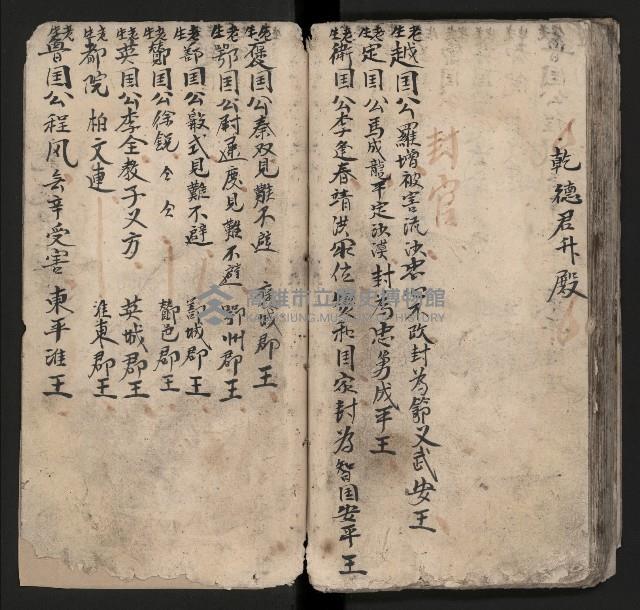 乾德君升殿
封官
老生 越国公羅增被害流沙 改封為節义武安王
老生 定国公馬成龍平定沙漠封為忠勇成平王
老生 衛国公李逢春靖洪 位 和国家封為智国安平王
老生 褒国公秦双見難不避 城郡王
老生 鄂国公尉遲度見難不避 鄂州郡王
老生 鄯国公殷式見難不避 鄯城郡王
老生 鄼国公徐銳仝仝 鄼邑郡王
老生 英国公李全教子义方 英城郡王
老生 都院 柏文連 淮東郡王
老生 魯国公程凤 辛受害 東平淮王
高雄市立歷史博物館
KAOHSIUNG MUSEUM OF HISTORY